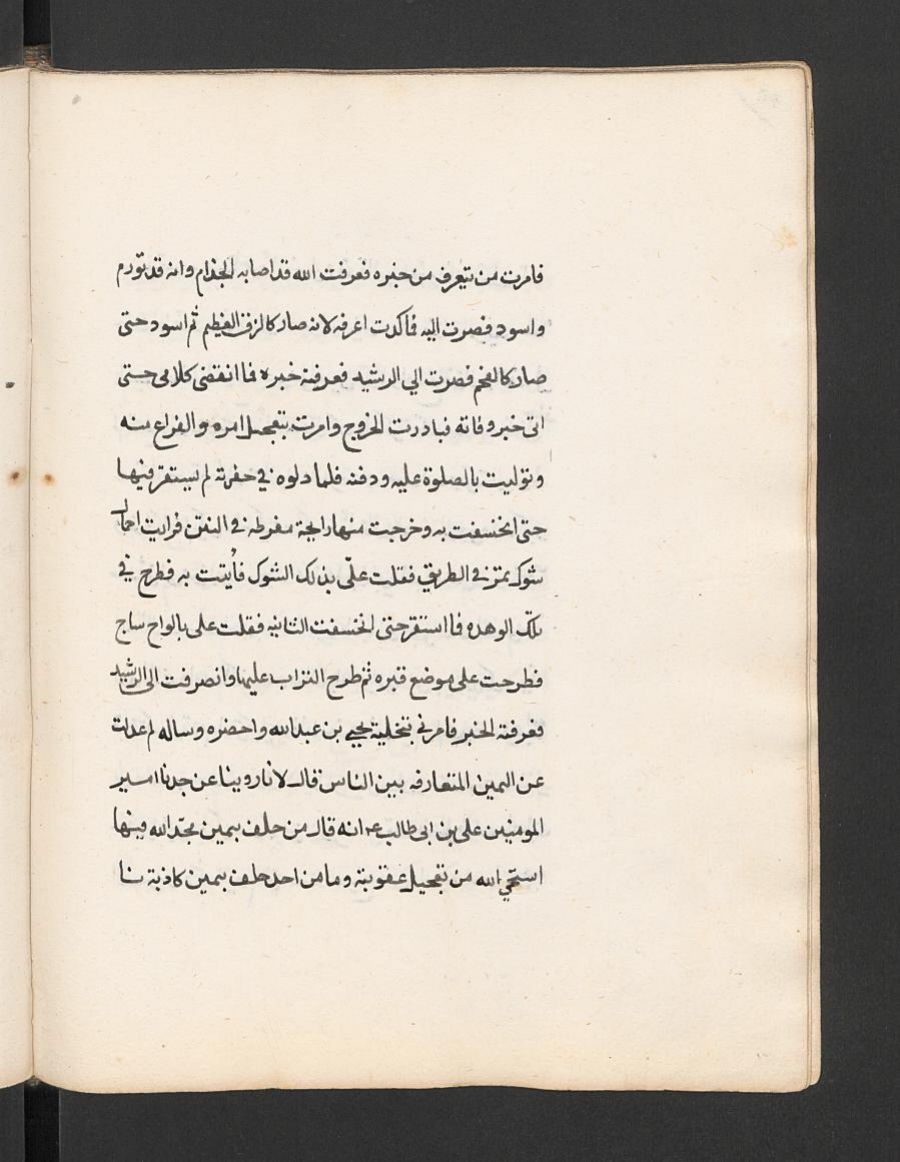 فامرت من يتعرف من خبره فعرفت الله قد اصابه الجذام وانه قد تورم
واسود فصرت اليه فما كدت اعرفه لانه صار كالزق العظيم ثم اسود حتى
صار كالفحم فصرت الي الرشيد فعرفته خبره فما انقضى كلامي حتى
اتى خبر وفاته فبادرت الخروج وامرت بتعجيل امره والفراغ منه
وتوليت بالصلوة عليه ودفنه فلما دلوه في حفرته لم يستقر فيها
حتى انخسفت به وخرجت منها رايحة مفرطه في النتن فرايت احمال
شوك تمر في الطريق فقلت علّي بذلك الشوك فأيتت به فطرح في
تلك الوهده فما استقر حتى انخسفت الثانيه فقلت على بالواح ساج
فطرحت على موضع قبره ثم طرح التراب عليها وانصرفت الى الرشيد
فعرفته الخبر فامرني بتخلية يحيي بن عبدالله واحضره وساله لم عدلت
عن اليمين المتعارفه بين الناس قال لانا روينا عن جدنا امير
المومنين على بن ابى طالب عم انه قال من حلف بيمين مجّد الله فيها
استحي الله من تعجيل عقوبته وما من احد حلف بيمين كاذبة نا